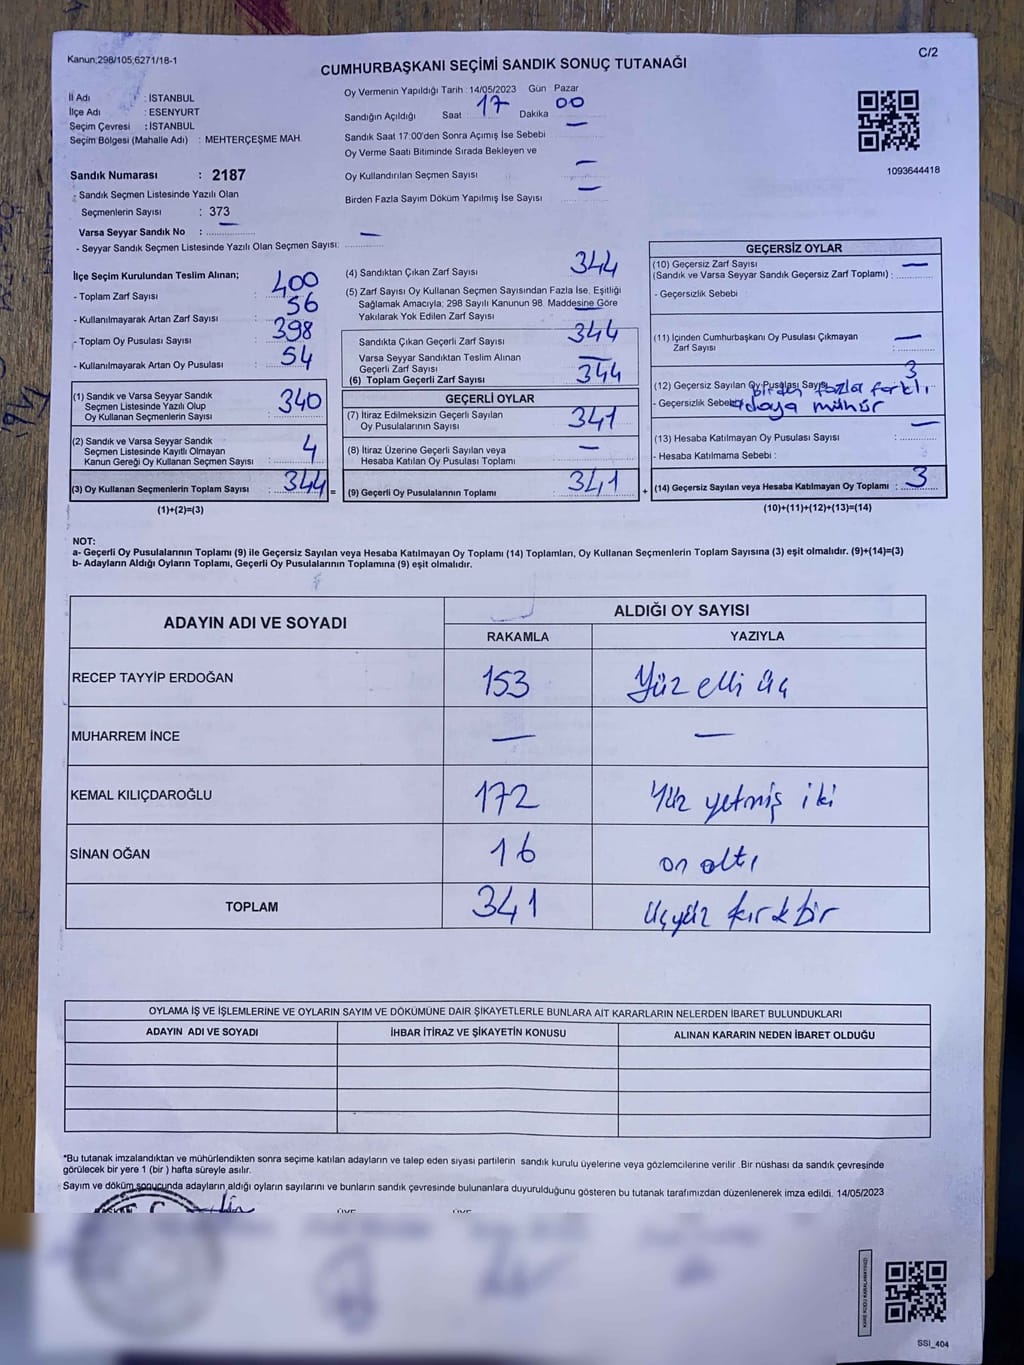 Kanun;298/105,6271/18-1
C/2
CUMHURBAŞKANI SEÇİMİ SANDIK SONUÇ TUTANAĞI
İl Adı : İSTANBUL
İlçe Adı : ESENYURT
Seçim Çevresi : İSTANBUL
Seçim Bölgesi (Mahalle Adı) : MEHTERÇEŞME MAH.
Oy Vermenin Yapıldığı Tarih : 14/05/2023 Gün Pazar
Sandığın Açıldığı Saat 17 Dakika 00
Sandık Saat 17:00'den Sonra Açılmış İse Sebebi —
Oy Verme Saati Bitiminde Sırada Bekleyen ve
Oy Kullandırılan Seçmen Sayısı —
Birden Fazla Sayım Döküm Yapılmış İse Sayısı —
1093644418
Sandık Numarası : 2187
- Sandık Seçmen Listesinde Yazılı Olan
Seçmenlerin Sayısı : 373
Varsa Seyyar Sandık No : —
- Seyyar Sandık Seçmen Listesinde Yazılı Olan Seçmen Sayısı: —
İlçe Seçim Kurulundan Teslim Alınan;
- Toplam Zarf Sayısı : 400
- Kullanılmayarak Artan Zarf Sayısı : 56
- Toplam Oy Pusulası Sayısı : 398
- Kullanılmayarak Artan Oy Pusulası : 54
(1) Sandık ve Varsa Seyyar Sandık
Seçmen Listesinde Yazılı Olup
Oy Kullanan Seçmenlerin Sayısı : 340
(2) Sandık ve Varsa Seyyar Sandık
Seçmen Listesinde Kayıtlı Olmayan
Kanun Gereği Oy Kullanan Seçmen Sayısı : 4
(3) Oy Kullanan Seçmenlerin Toplam Sayısı : 344 =
(1)+(2)=(3)
(4) Sandıktan Çıkan Zarf Sayısı : 344
(5) Zarf Sayısı Oy Kullanan Seçmen Sayısından Fazla İse, Eşitliği
Sağlamak Amacıyla; 298 Sayılı Kanunun 98. Maddesine Göre
Yakılarak Yok Edilen Zarf Sayısı : —
Sandıkta Çıkan Geçerli Zarf Sayısı : 344
Varsa Seyyar Sandıktan Teslim Alınan
Geçerli Zarf Sayısı : —
(6) Toplam Geçerli Zarf Sayısı : 344
GEÇERLİ OYLAR
(7) İtiraz Edilmeksizin Geçerli Sayılan
Oy Pusulalarının Sayısı : 341
(8) İtiraz Üzerine Geçerli Sayılan veya
Hesaba Katılan Oy Pusulası Toplamı : —
(9) Geçerli Oy Pusulalarının Toplamı : 341 +
GEÇERSİZ OYLAR
(10) Geçersiz Zarf Sayısı
(Sandık ve Varsa Seyyar Sandık Geçersiz Zarf Toplamı) : —
- Geçersizlik Sebebi :
(11) İçinden Cumhurbaşkanı Oy Pusulası Çıkmayan
Zarf Sayısı : —
(12) Geçersiz Sayılan Oy Pusulası Sayısı 3
- Geçersizlik Sebebi birden fazla farklı
adaya mühür
(13) Hesaba Katılmayan Oy Pusulası Sayısı : —
- Hesaba Katılmama Sebebi :
(14) Geçersiz Sayılan veya Hesaba Katılmayan Oy Toplamı : 3
(10)+(11)+(12)+(13)=(14)
NOT:
a- Geçerli Oy Pusulalarının Toplamı (9) ile Geçersiz Sayılan veya Hesaba Katılmayan Oy Toplamı (14) Toplamları, Oy Kullanan Seçmenlerin Toplam Sayısına (3) eşit olmalıdır. (9)+(14)=(3)
b- Adayların Aldığı Oyların Toplamı, Geçerli Oy Pusulalarının Toplamına (9) eşit olmalıdır.
ADAYIN ADI VE SOYADI ALDIĞI OY SAYISI
RAKAMLA YAZIYLA
RECEP TAYYİP ERDOĞAN 153 Yüz elli üç
MUHARREM İNCE — —
KEMAL KILIÇDAROĞLU 172 Yüz yetmiş iki
SİNAN OĞAN 16 on altı
TOPLAM 341 üçyüz kırk bir
OYLAMA İŞ VE İŞLEMLERİNE VE OYLARIN SAYIM VE DÖKÜMÜNE DAİR ŞİKAYETLERLE BUNLARA AİT KARARLARIN NELERDEN İBARET BULUNDUKLARI
ADAYIN ADI VE SOYADI İHBAR İTİRAZ VE ŞİKAYETİN KONUSU ALINAN KARARIN NEDEN İBARET OLDUĞU
*Bu tutanak imzalandıktan ve mühürlendikten sonra seçime katılan adayların ve talep eden siyasi partilerin sandık kurulu üyelerine veya gözlemcilerine verilir .Bir nüshası da sandık çevresinde
görülecek bir yere 1 (bir ) hafta süreyle asılır.
Sayım ve döküm sonucunda adayların aldığı oyların sayılarını ve bunların sandık çevresinde bulunanlara duyurulduğunu gösteren bu tutanak tarafımızdan düzenlenerek imza edildi. 14/05/2023
ÜYE ÜYE
SSİ_404